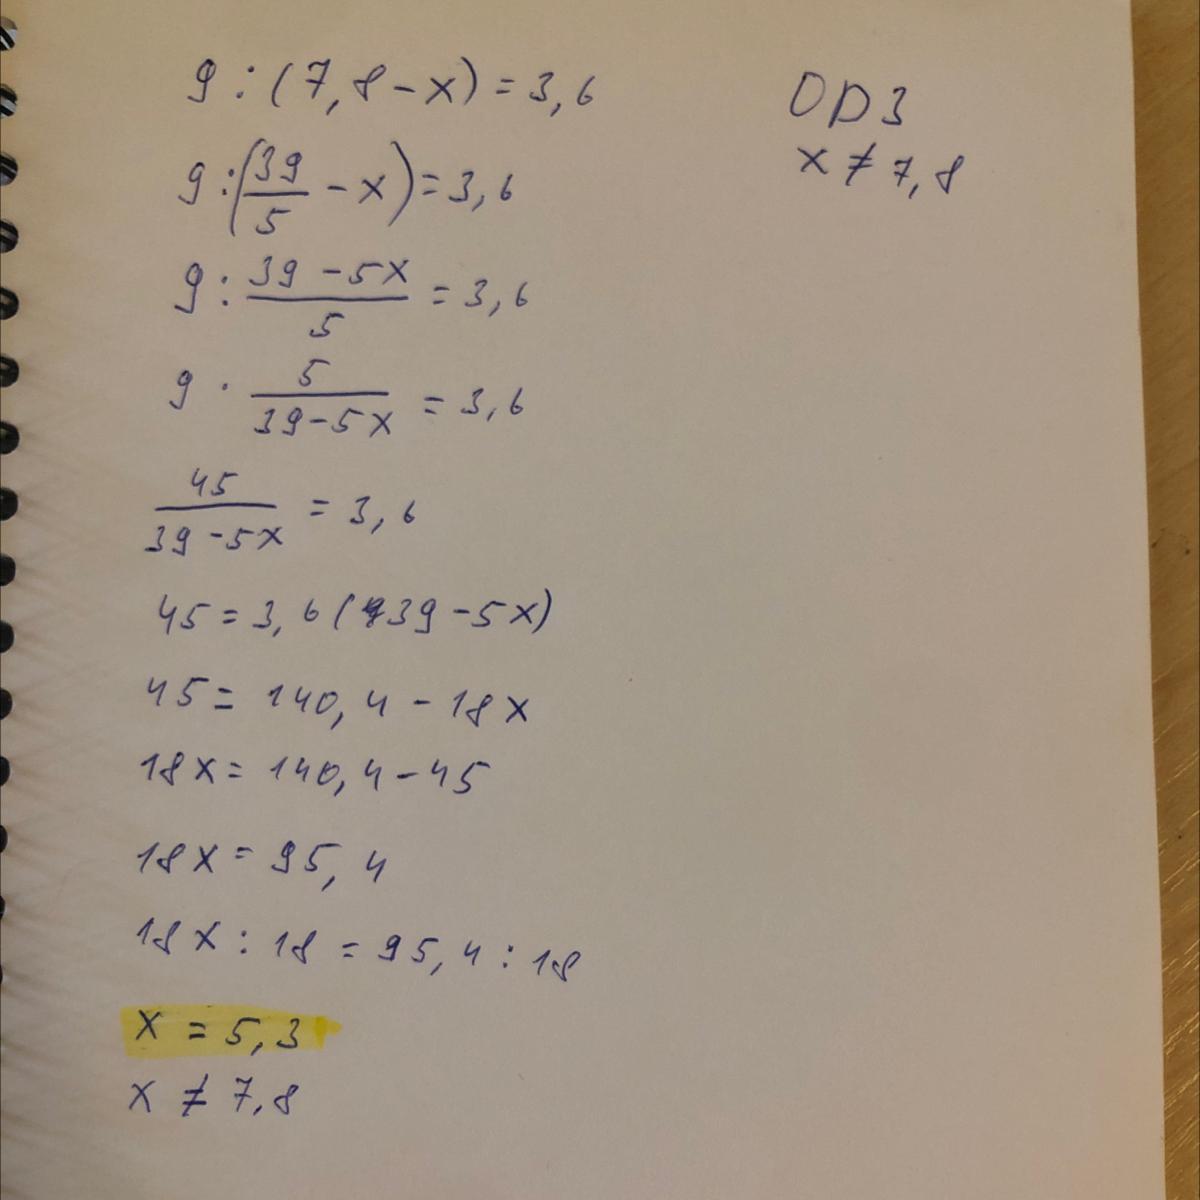 9 : (7,8 - x) = 3,6
ОДЗ
x ≠ 7,8
9 : (39/5 - x) = 3,6
9 : (39 - 5x)/5 = 3,6
9 · 5/(39 - 5x) = 3,6
45/(39 - 5x) = 3,6
45 = 3,6(39 - 5x)
45 = 140,4 - 18x
18x = 140,4 - 45
18x = 95,4
18x : 18 = 95,4 : 18
x = 5,3
x ≠ 7,8